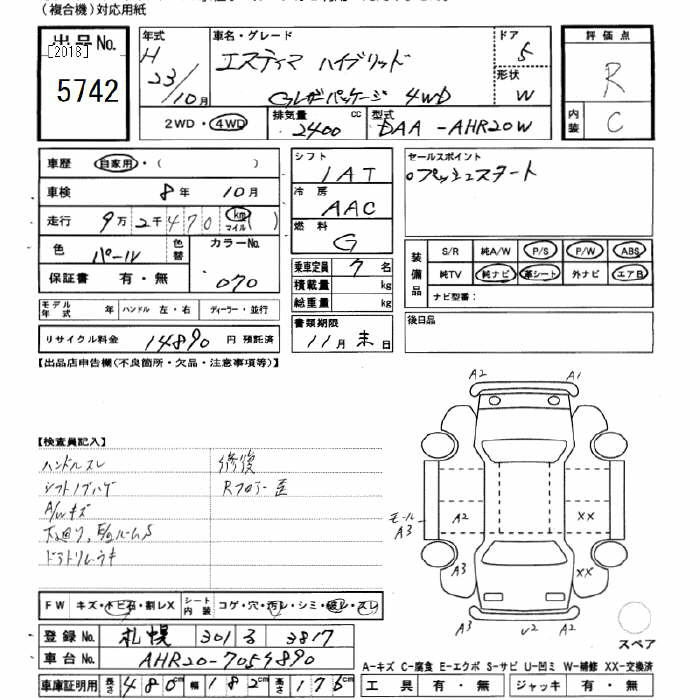 (複合機)対応用紙
出品No.
[2018]
5742
年式 H 23/10月
車名・グレード エスティマ ハイブリッド
Gレザパッケージ 4WD
ドア 5
形状 W
評価点 R
内装 C
2WD・4WD
排気量 2400 cc
型式 DAA-AHR20W
車歴 自家用・( )
車検 8年 10月
走行 9万2千470 km マイル( )
色 パール 色替
カラーNo. 070
保証書 有・無
シフト IAT
冷房 AAC
燃料 G
乗車定員 7名
積載量 kg
総重量 kg
書類期限
11月 末日
セールスポイント
○プッシュスタート
装備品
S/R 純A/W P/S P/W ABS
純TV 純ナビ 革シート 外ナビ エアB
ナビ型番:
後日品
モデル年式 年 ハンドル 左・右 ディーラー・並行
リサイクル料金 14890 円 預託済
【出品店申告欄(不良箇所・欠品・注意事項等)】
【検査員記入】
ハンドルスレ
シフトノブハゲ
A/Wキズ
下廻り、E/gルームS
ドアトリムウキ
修復
Rフロアー歪
A2 A1
モール A3
A2 XX
A3 XX
A3 U2 A2
スペア
FW キズ・トビ石・割レX シート内装 コゲ・穴・汚レ・シミ・破レ・スレ
登録No. 札幌 301 る 3817
車台No. AHR20-7054890
車庫証明用 長さ 480cm 幅 182cm 高さ 175cm
A-キズ C-腐食 E-エクボ S-サビ U-凹ミ W-補修 XX-交換済
工具 有・無 ジャッキ 有・無